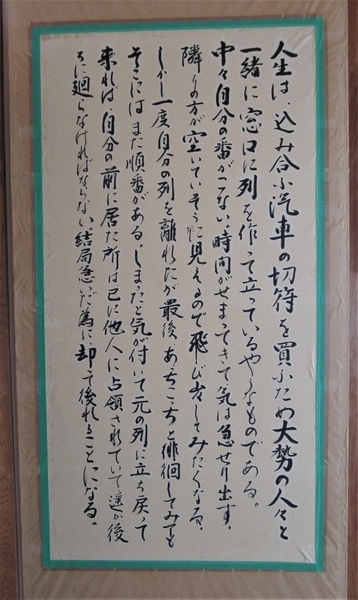 人生は、込み合ふ汽車の切符を買ふため大勢の人々と
一緒に窓口に列を作って立っているやうなものである。
中々自分の番がこない、時間がせまってきて気は急せり出す。
隣りの方が空いていそうに見えるので飛び出してみたくなる。
しかし一度自分の列を離れたが最後、あっちこっちと徘徊してみても
そこにはまた順番がある。しまったと気が付いて元の列に立ち戻って
来れば、自分の前に居た所は已に他人に占領されていて遙か後
ろに廻らなければならない、結局急いだ為に却って後れることになる。